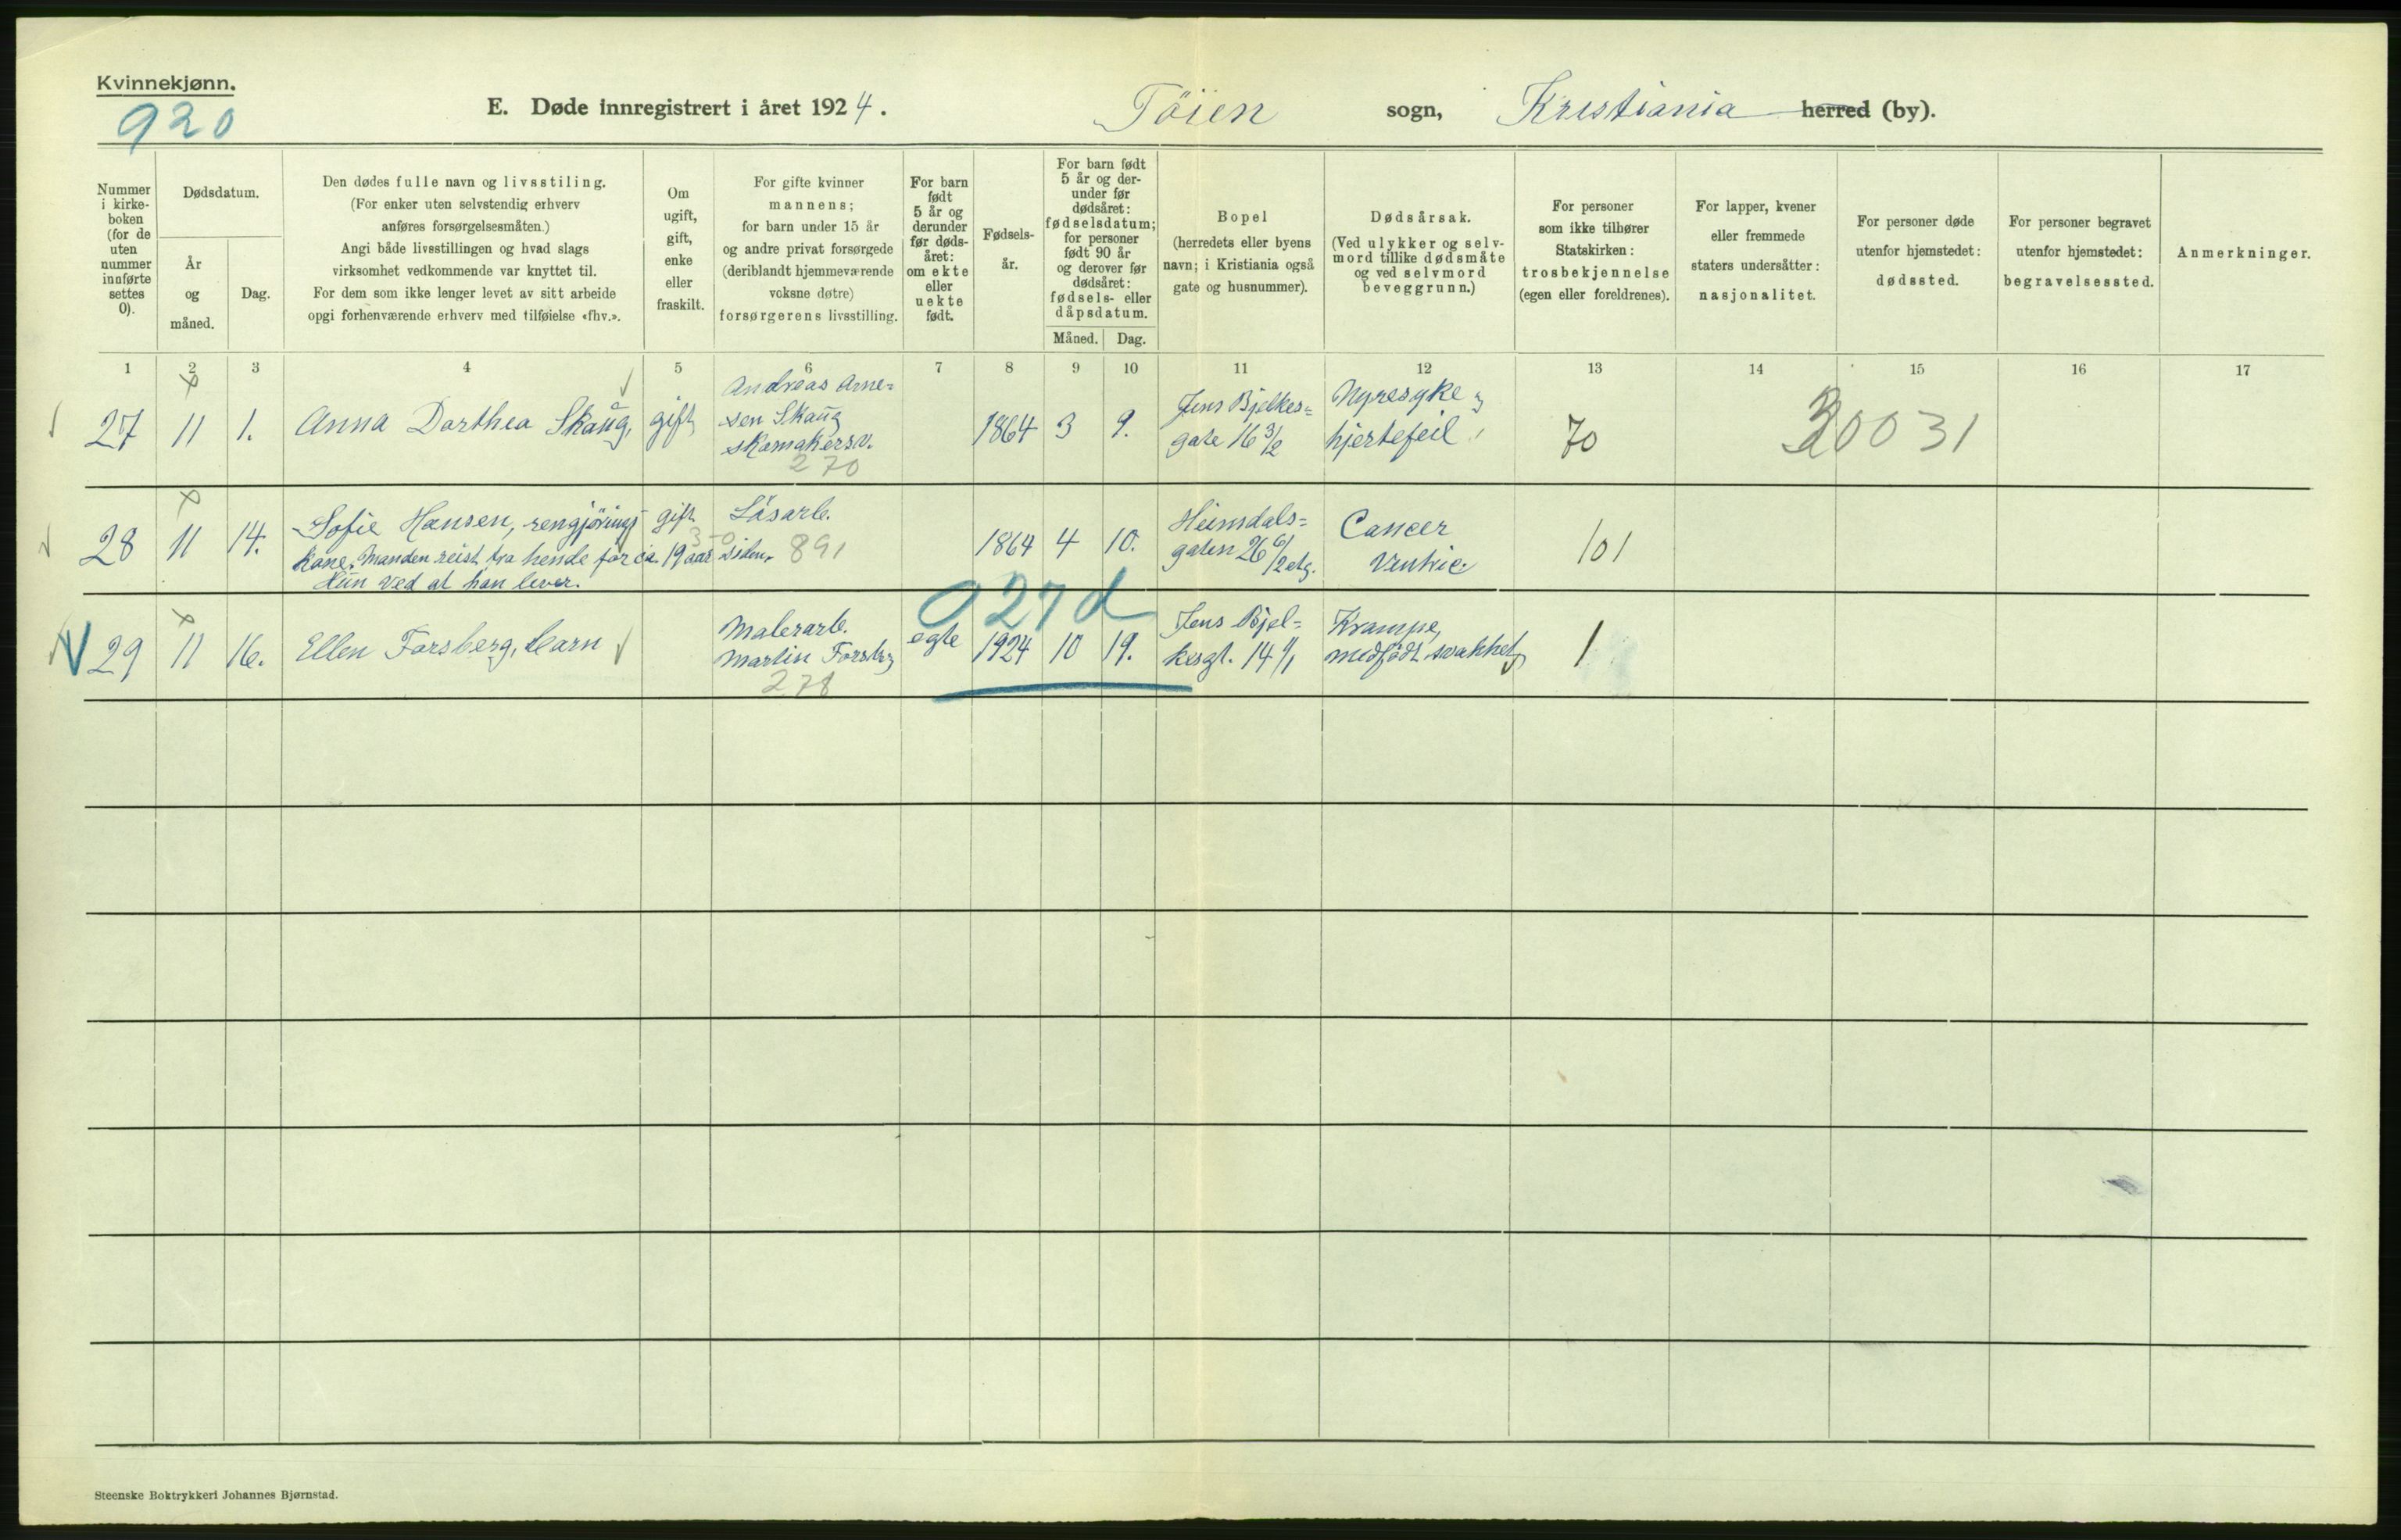 Kvinnekjønn.
920
E. Døde innregistrert i året 1924.
Töien sogn, Kristiania herred (by).
Nummer i kirke-boken (for de uten nummer innførte settes 0).
Dødsdatum.
År og måned.
Dag.
Den dødes fulle navn og livsstiling.
(For enker uten selvstendig erhverv
anføres forsørgelsesmåten.)
Angi både livsstillingen og hvad slags
virksomhet vedkommende var knyttet til.
For dem som ikke lenger levet av sitt arbeide
opgi forhenværende erhverv med tilføielse «fhv.».
Om
ugift,
gift,
enke
eller
fraskilt.
For gifte kvinner
mannens;
for barn under 15 år
og andre privat forsørgede
(deriblandt hjemmeværende
voksne døtre)
forsørgerens livsstilling.
For barn
født
5 år og
derunder
før døds-
året:
om ekte
eller
uekte
født.
Fødsels-
år.
For barn født
5 år og der-
under før
dødsåret:
fødselsdatum;
for personer
født 90 år
og derover før
dødsåret:
fødsels- eller
dåpsdatum.
Måned. Dag.
Bopel
(herredets eller byens
navn; i Kristiania også
gate og husnummer).
Dødsårsak.
(Ved ulykker og selv-
mord tillike dødsmåte
og ved selvmord
beveggrunn.)
For personer
som ikke tilhører
Statskirken:
trosbekjennelse
(egen eller foreldrenes).
For lapper, kvener
eller fremmede
staters undersåtter:
nasjonalitet.
For personer døde
utenfor hjemstedet:
dødssted.
For personer begravet
utenfor hjemstedet:
begravelsessted.
Anmerkninger.
1 2 3 4 5 6 7 8 9 10 11 12 13 14 15 16 17
27 11 1. Anna Dorthea Skaug, gift
Andreas Arne=
sen Skaug
skomakersv.
270
1864 3 9.
Jens Bjelkes=
gate 16 3/2
Nyresyke og
hjertefeil
70
30031
28 11 14. Sofie Hansen, rengjørings
kone. Manden reist fra hende for ca. 19 aar siden.
Hun ved at han lever.
gift
Løsarb.
891
1864 4 10.
Heimsdals=
gaten 26 6/2 etg.
Cancer
Ventric.
101
027d
29 11 16. Ellen Forsberg, barn
Malerarb.
Martin Forsberg
278
egte 1924 10 19.
Jens Bjel=
kesgt. 14 4/1
Krampe,
medfödt svakhet
1
Steenske Boktrykkeri Johannes Bjørnstad.